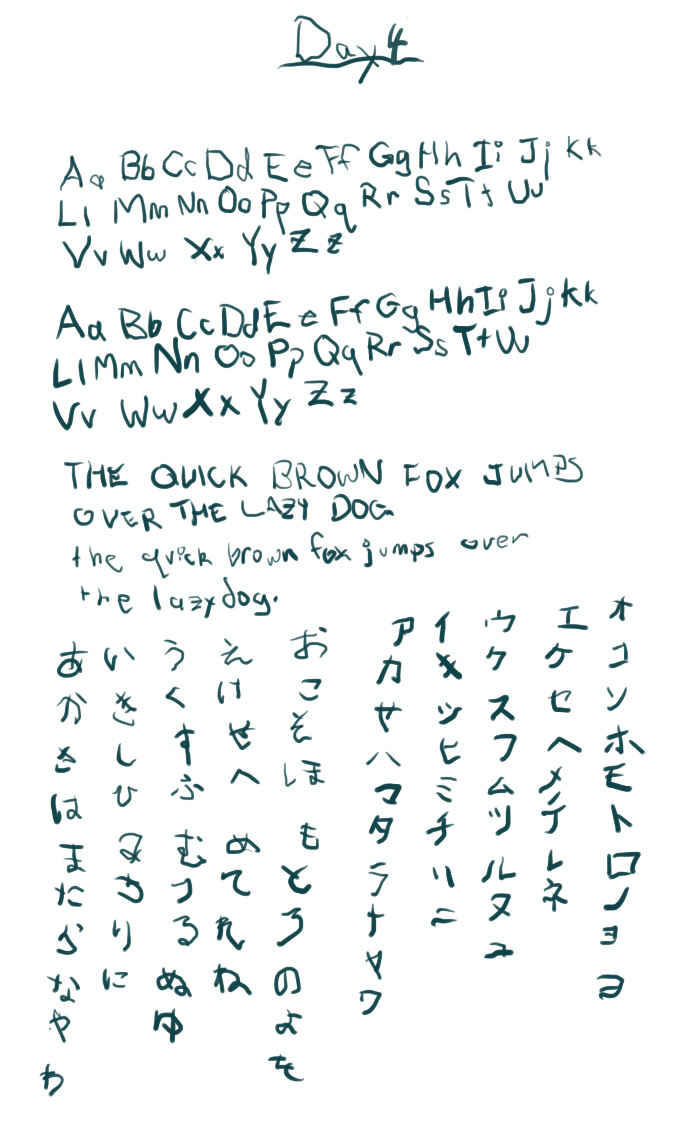 Day 4
Aa Bb Cc Dd Ee Ff Gg Hh Ii Jj Kk
Ll Mm Nn Oo Pp Qq Rr Ss Tt Uu
Vv Ww Xx Yy Zz
Aa Bb Cc Dd Ee Ff Gg Hh Ii Jj Kk
Ll Mm Nn Oo Pp Qq Rr Ss Tt Uu
Vv Ww Xx Yy Zz
THE QUICK BROWN FOX JUMPS
OVER THE LAZY DOG
the quick brown fox jumps over
the lazy dog.
あかさはまたらなやわ
いきしひみちりに
うくすふむつるぬゆ
えけせへめてれね
おこそほもとろのよを
アカサハマタラナヤワ
イキシヒミチリニ
ウクスフムツルヌユ
エケセヘメテレネ
オコソホモトロノヨヲ